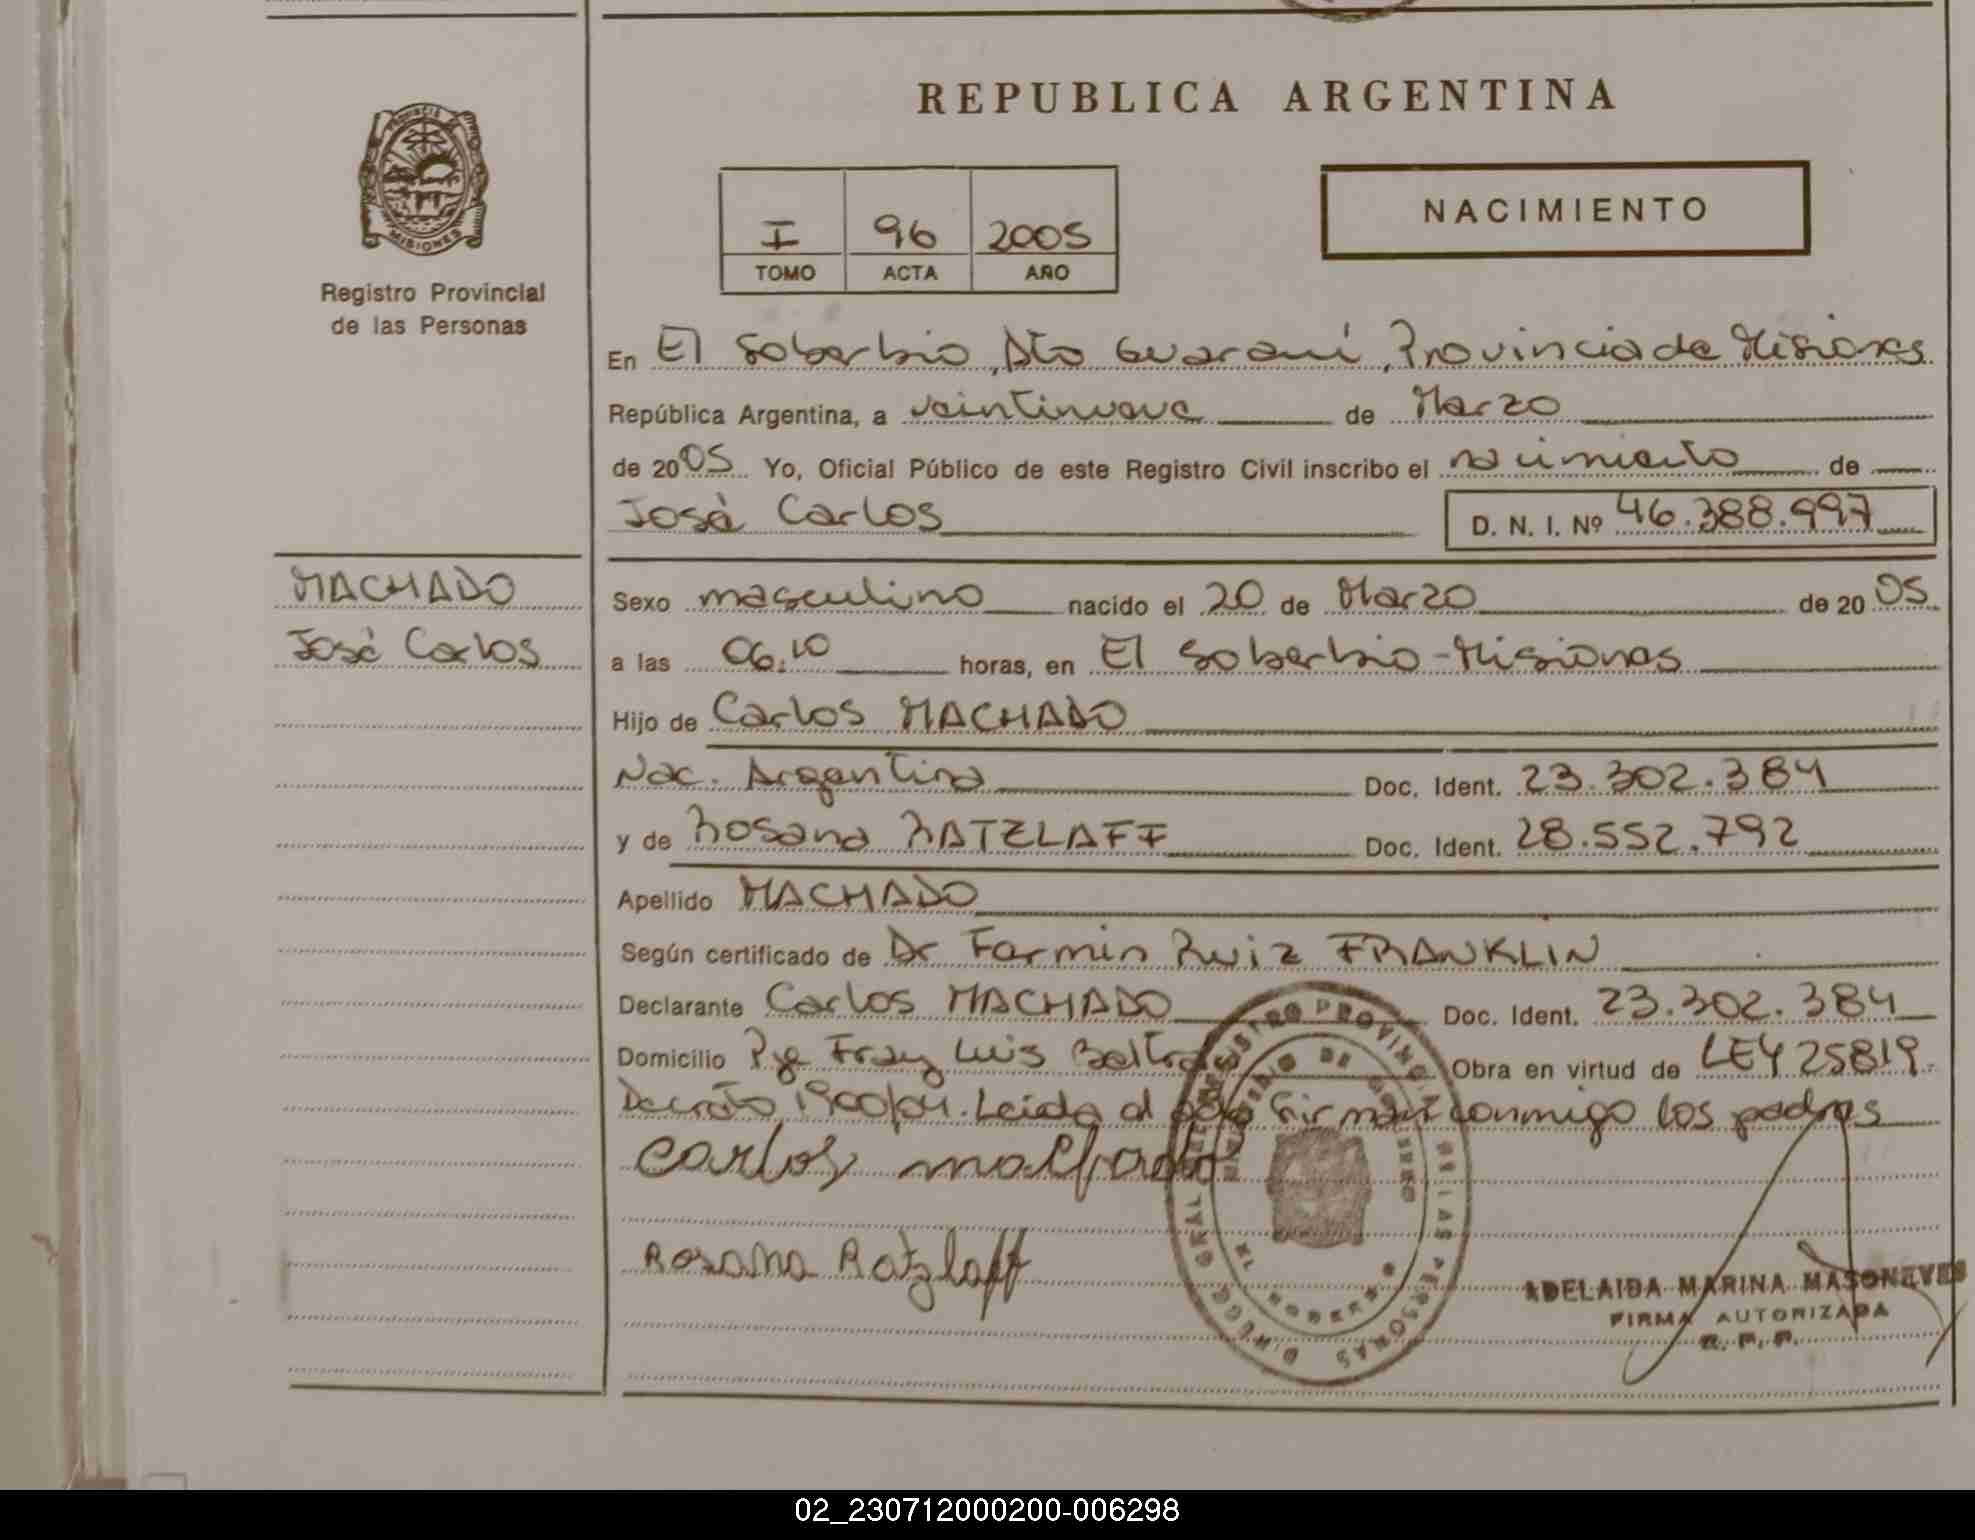 REPUBLICA ARGENTINA
PROVINCIA DE
MISIONES
Registro Provincial
de las Personas
I 96 2005
TOMO ACTA AÑO
NACIMIENTO
En El Soberbio, Dto Guaraní, Provincia de Misiones
República Argentina, a veintinueve de Marzo
de 2005 Yo, Oficial Público de este Registro Civil inscribo el nacimiento de
José Carlos D. N. I. Nº 46.388.997
MACHADO
José Carlos
Sexo masculino nacido el 20 de Marzo de 2005
a las 06.10 horas, en El Soberbio - Misiones
Hijo de Carlos MACHADO
Nac. Argentina Doc. Ident. 23.302.384
y de Rosana RATZLAFF Doc. Ident. 28.552.792
Apellido MACHADO
Según certificado de Dr Fermin Ruiz FRANKLIN
Declarante Carlos MACHADO Doc. Ident. 23.302.384
Domicilio Pje Fray Luis Beltran Obra en virtud de LEY 25819.
Decreto 1900/04. Leida el acta firman conmigo los padres
Carlos
Rosana Ratzlaff
REGISTRO PROVINCIAL DE LAS PERSONAS
MINISTERIO DE GOBIERNO
ADELAIDA MARINA MASONEVES
FIRMA AUTORIZADA
R. P. P.
02_230712000200-006298